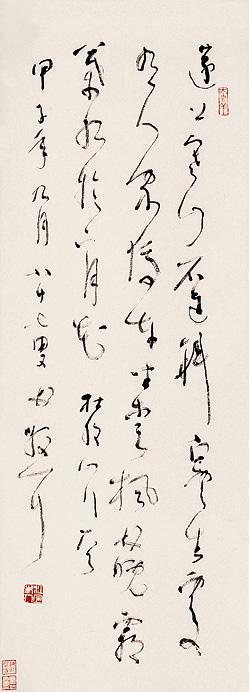 遠上寒山石徑斜白雲生處
有人家停車坐愛楓林晚霜
葉紅於二月花 杜牧山行
甲子年九月八十七叟林散耳